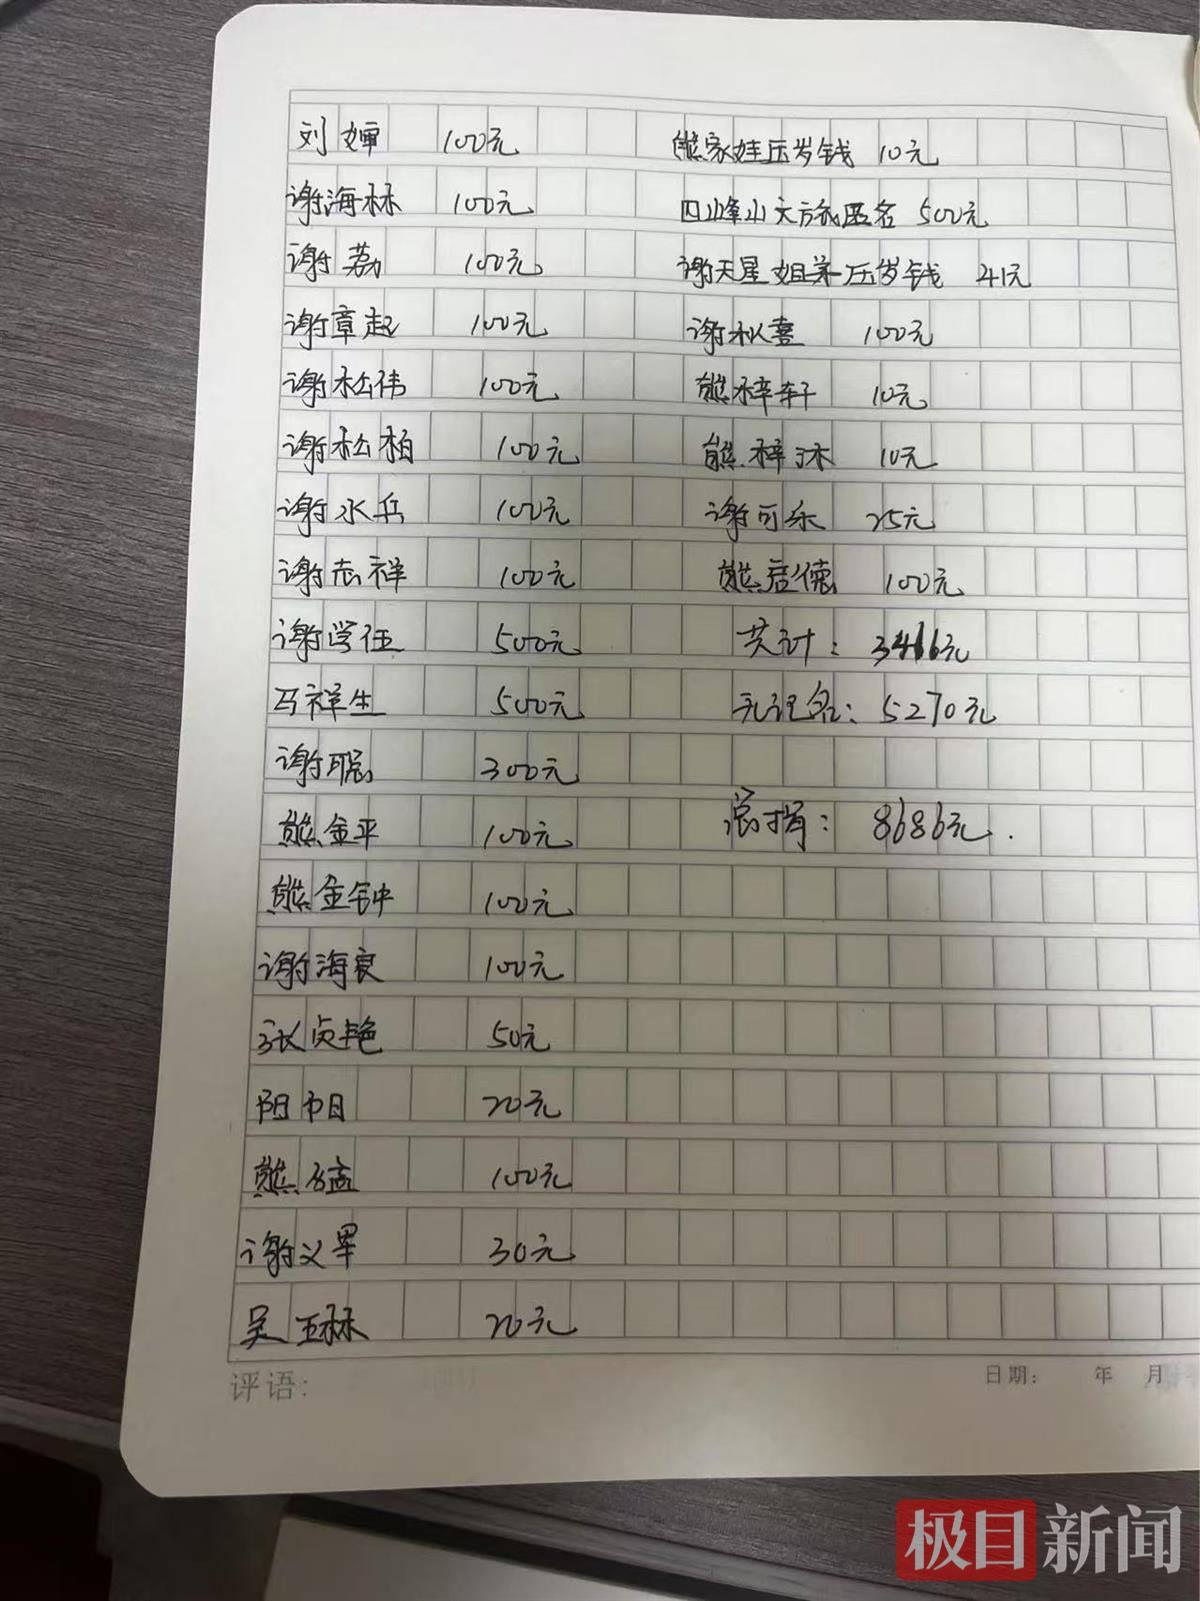 刘婵 100元
谢海林 100元
谢荔 100元
谢章起 100元
谢松伟 100元
谢松柏 100元
谢水兵 100元
谢志祥 100元
谢学伍 500元
马祥生 500元
谢聪 300元
熊金平 100元
熊金钟 100元
谢海良 100元
张贞艳 50元
20元
熊 100元
谢义军 30元
吴玉林 20元
熊家娃压岁钱 10元
四峰山大方班匿名 500元
谢天星姐弟压岁钱 41元
谢秋喜 100元
熊梓轩 10元
熊梓沐 10元
谢可乐 25元
熊彦德 100元
共计：3416元
无记名：5270元
总捐：8686元.
评语:
日期: 年 月
极目新闻